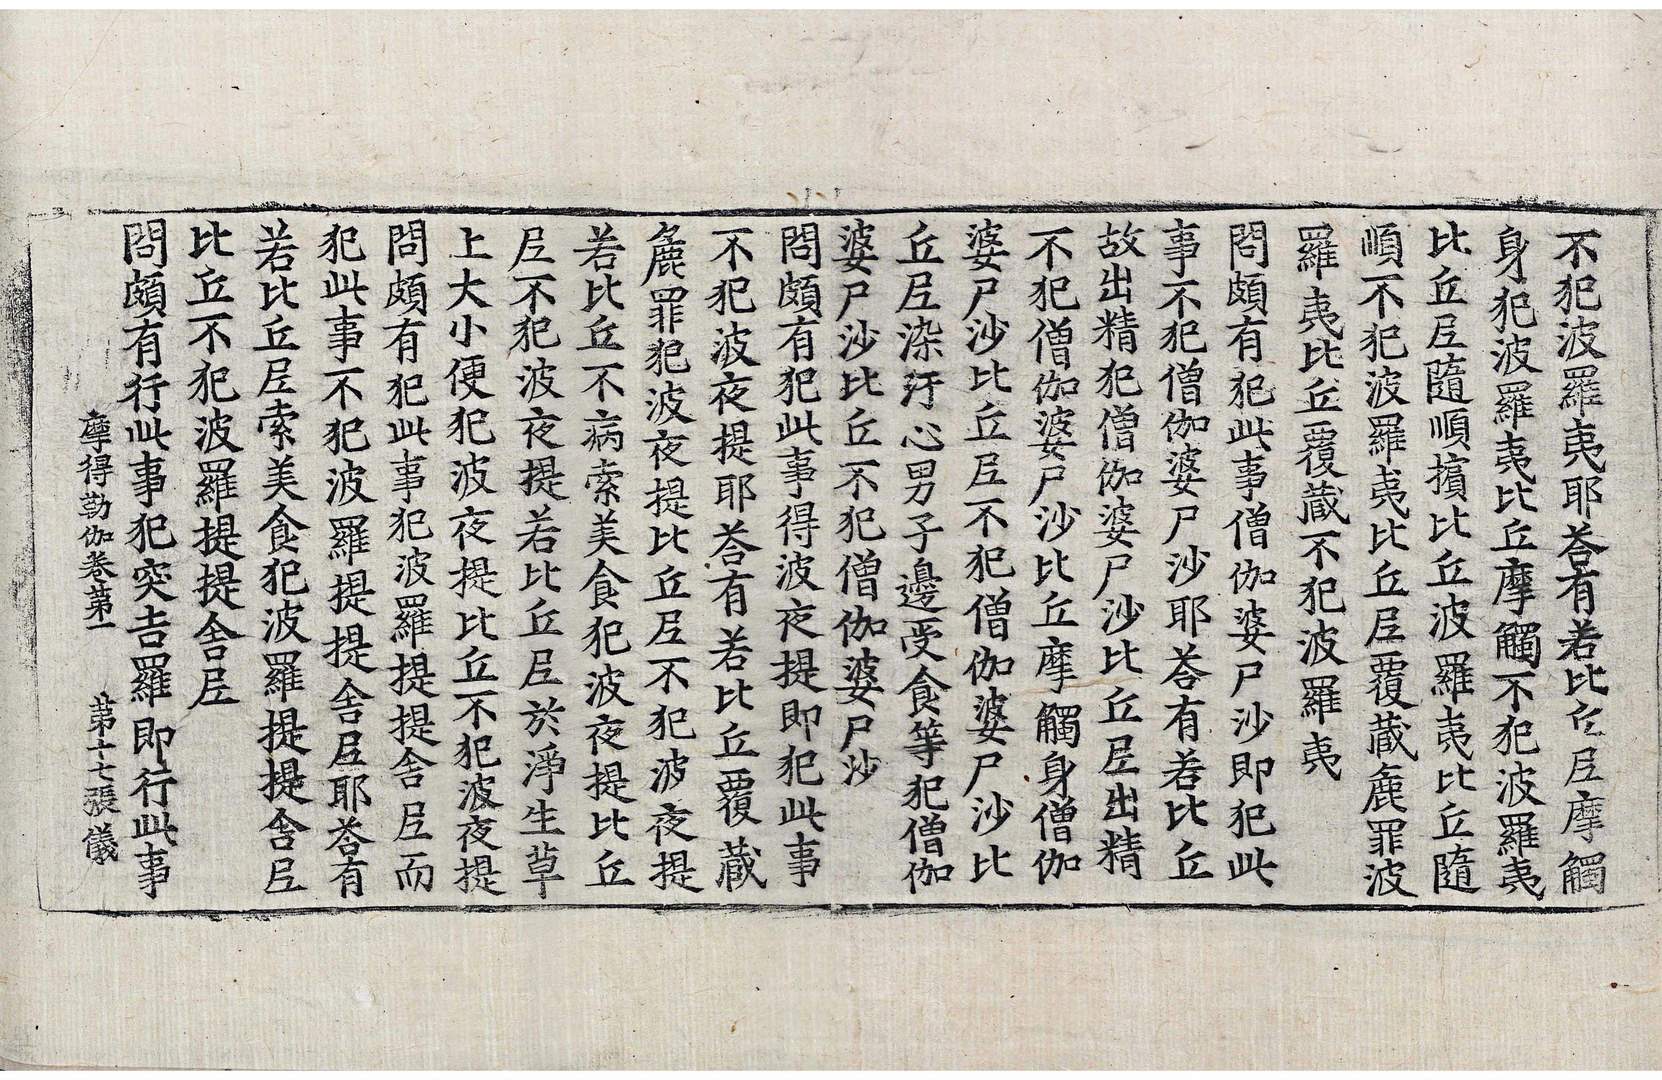 不犯波羅夷耶荅有若比丘尼摩觸
身犯波羅夷比丘摩觸不犯波羅夷
比丘尼隨順擯比丘波羅夷比丘隨
順不犯波羅夷比丘尼覆藏麁罪波
羅夷比丘覆藏不犯波羅夷
問頗有犯此事僧伽婆尸沙即犯此
事不犯僧伽婆尸沙耶荅有若比丘
故出精犯僧伽婆尸沙比丘尼出精
不犯僧伽婆尸沙比丘摩觸身僧伽
婆尸沙比丘尼不犯僧伽婆尸沙比
丘尼染汙心男子邊受食等犯僧伽
婆尸沙比丘不犯僧伽婆尸沙
問頗有犯此事得波夜提即犯此事
不犯波夜提耶荅有若比丘覆藏
麁罪犯波夜提比丘尼不犯波夜提
若比丘不病索美食犯波夜提比丘
尼不犯波夜提若比丘尼於淨生草
上大小便犯波夜提比丘不犯波夜提
問頗有犯此事犯波羅提提舍尼而
犯此事不犯波羅提提舍尼耶荅有
若比丘尼索美食犯波羅提提舍尼
比丘不犯波羅提提舍尼
問頗有行此事犯突吉羅即行此事
摩得勒伽卷第一　第十七張　儀